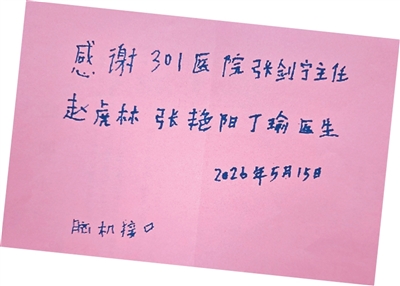 感谢301医院张剑宁主任
赵虎林 张艳阳 丁瑜医生
2026年5月15日
脑机接口